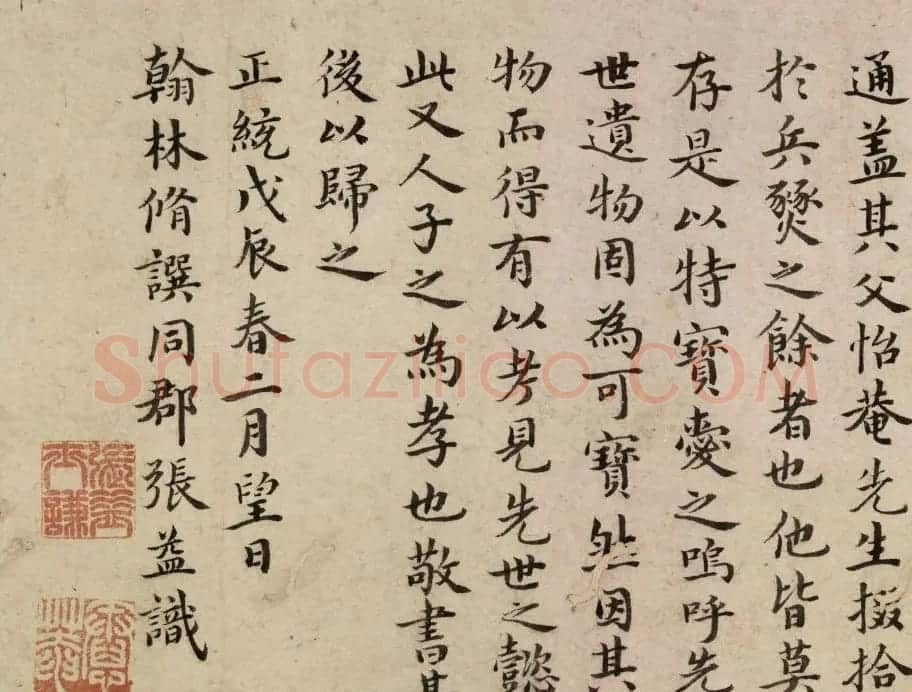 通蓋其父怡菴先生掇拾
於兵燹之餘者也他皆莫
存是以特寶愛之嗚呼先
世遺物固為可寶然因其
物而得有以考見先世之懿
此又人子之為孝也敬書其
後以歸之
正統戊辰春二月望日
翰林脩譔同郡張益識
Shufaziliao.COM